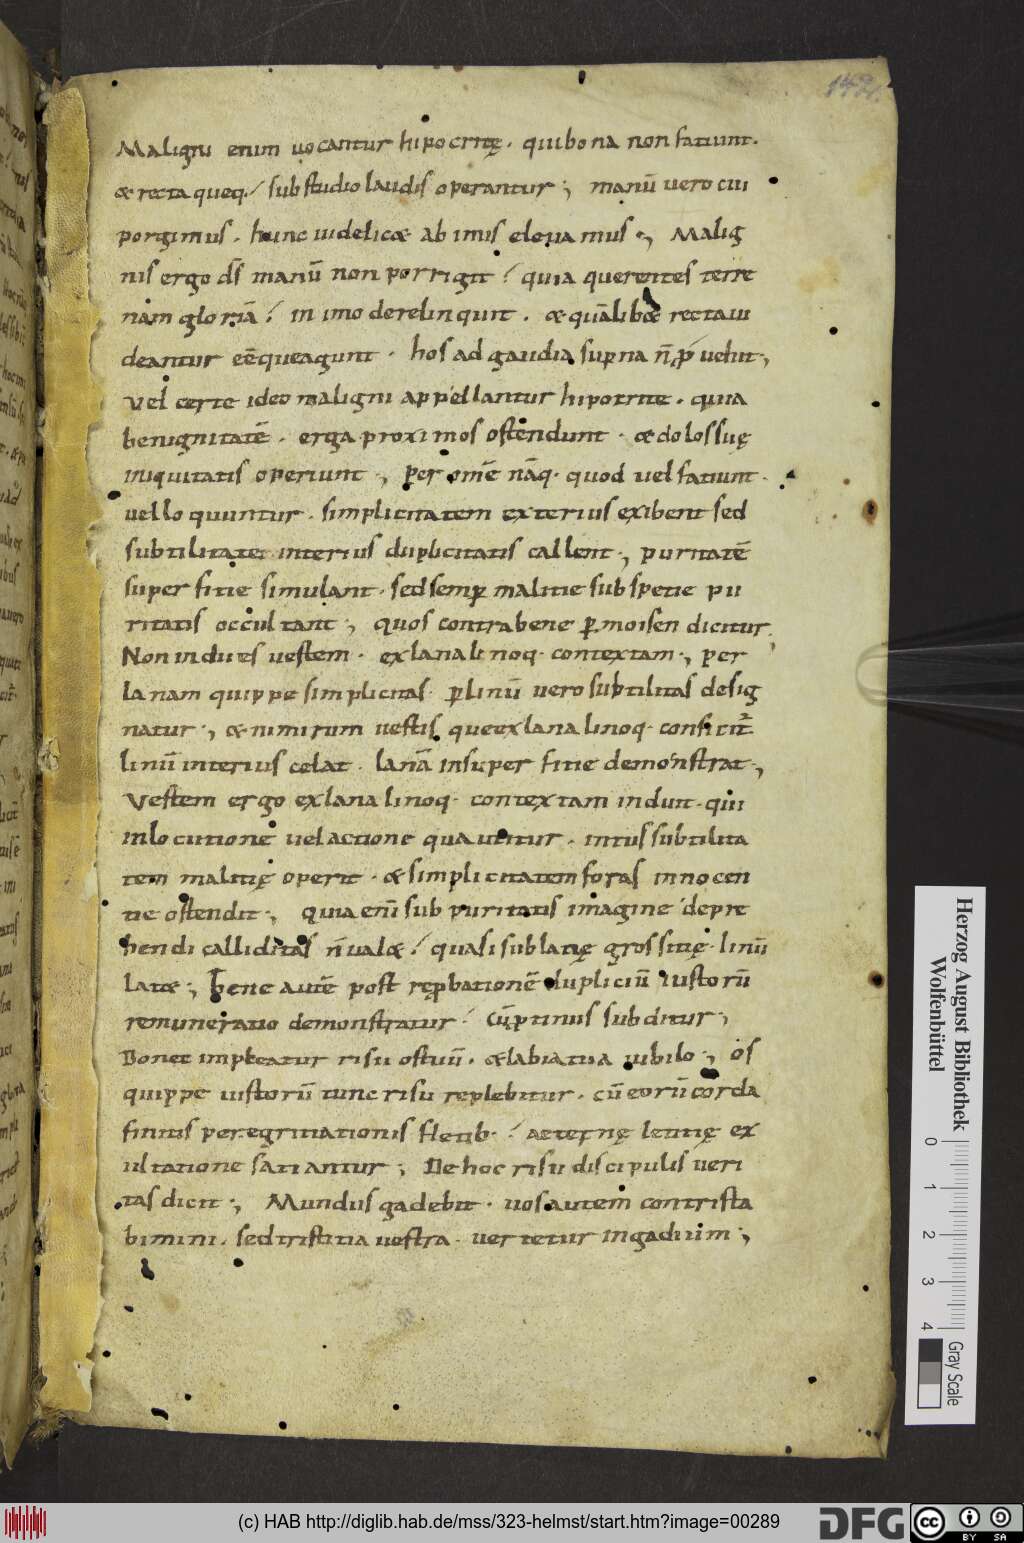 Maligni enim uocantur hipocritę. qui bona non fatiunt.
& recta queq; sub studio laudis operantur; manū uero cui
porgimus. hunc uidelic& ab imis eleuamus; Malig
nis ergo dſ manū non porrigit; quia querentes terre
nam gloriā; in imo derelinquit. & quālib& recta ui
deantur eē que agunt. hos ad gaudia superna ñ puehit;
Vel certe ideo maligni appellantur hipocrite. quia
benignitatē. erga proximos ostendunt. & dolos suę
iniquitatis operiunt; per omē nāq. quod uel fatiunt.
uel loquuntur. simplicitatem exterius exibent sed
subtilitate interius duplicitatis callent; puritatē
superfitie simulant. sed semp malitie sub spetie pu
ritatis occultant; quos contra bene p moisen dicitur.
Non indues uestem. ex lana linoq. contextam; per
lanam quippe simplicitas. p linū uero subtilitas desig
natur; & nimirum uestis que ex lana linoq. conficit
linū interius celat. lanā in superfitie demonstrat;
Vestem ergo ex lana linoq. contextam induit. qui
in locutione uel actione qua utitur. intus subtilita
tem malitię operit. & simplicitatem foras innocen
tie ostendit; quia enī sub puritatis imagine depre
hendi calliditas ñ ual&; quasi sub lanę grossitię. linū
lat&; Bene autē post repbationē dupliciū iustorū
remuneratio demonstratur; Cū ptinus subditur;
Donec impleatur risu os tuū. & labia tua iubilo; Os
quippe iustorū tunc risu replebitur. cū eorū corda
finitis peregrinationis fletib.; aeternę letitię ex
ultatione satiantur; De hoc risu discipulis ueri
tas dicit; Mundus gadebit. uos autem contrista
bimini. sed tristitia uestra. uertetur in gadium;
Herzog August Bibliothek
Wolfenbüttel
0 1 2 3 4
Gray Scale
(c) HAB http://diglib.hab.de/mss/323-helmst/start.htm?image=00289
DFG
cc BY SA